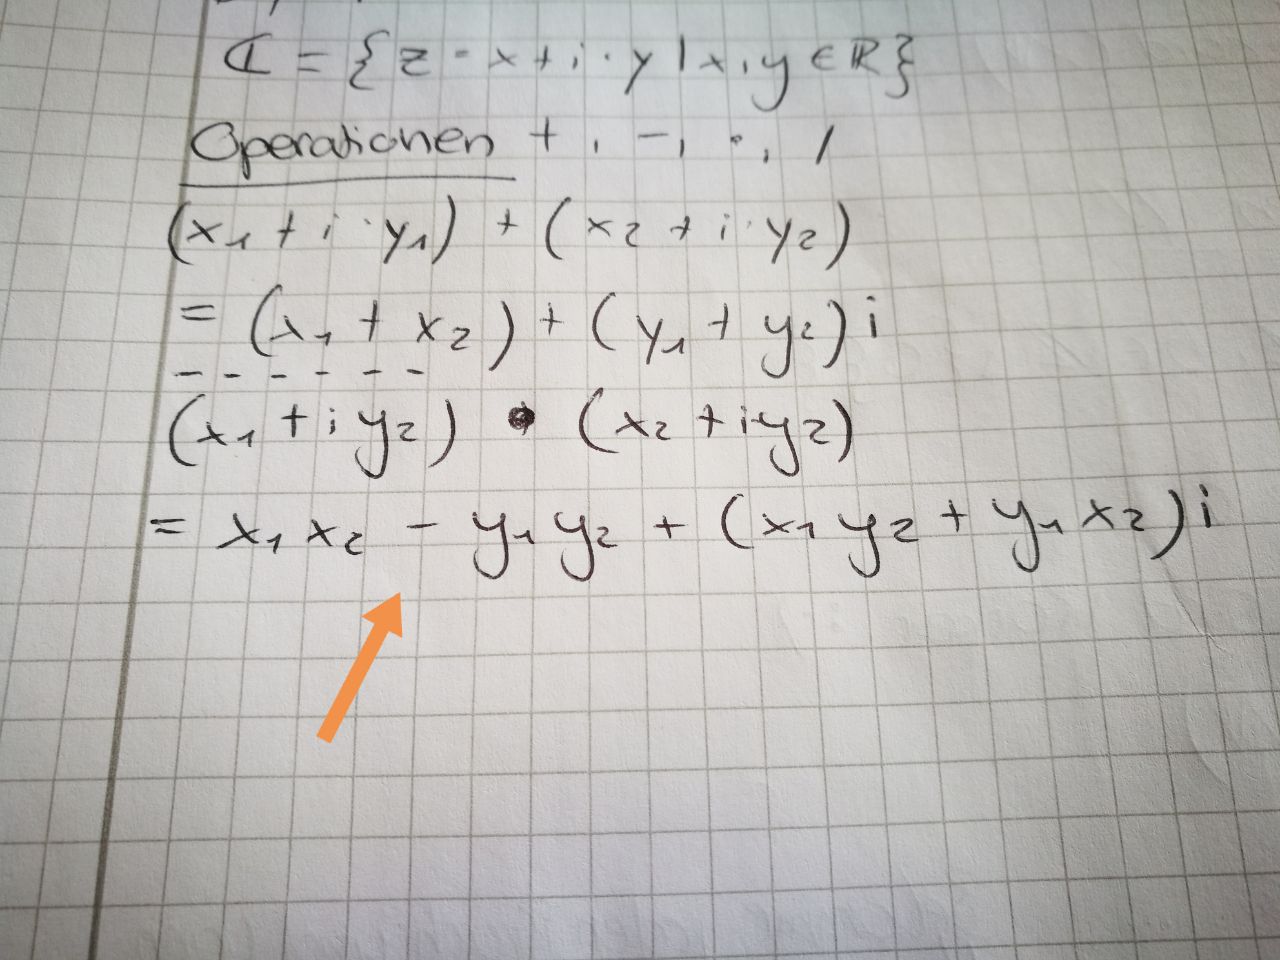 ℂ = {z = x + i · y | x, y ∈ ℝ}
Operationen +, -, ·, /
(x₁ + i · y₁) + (x₂ + i · y₂)
= (x₁ + x₂) + (y₁ + y₂) i
(x₁ + i y₂) · (x₂ + i y₂)
= x₁ x₂ - y₁ y₂ + (x₁ y₂ + y₁ x₂) i